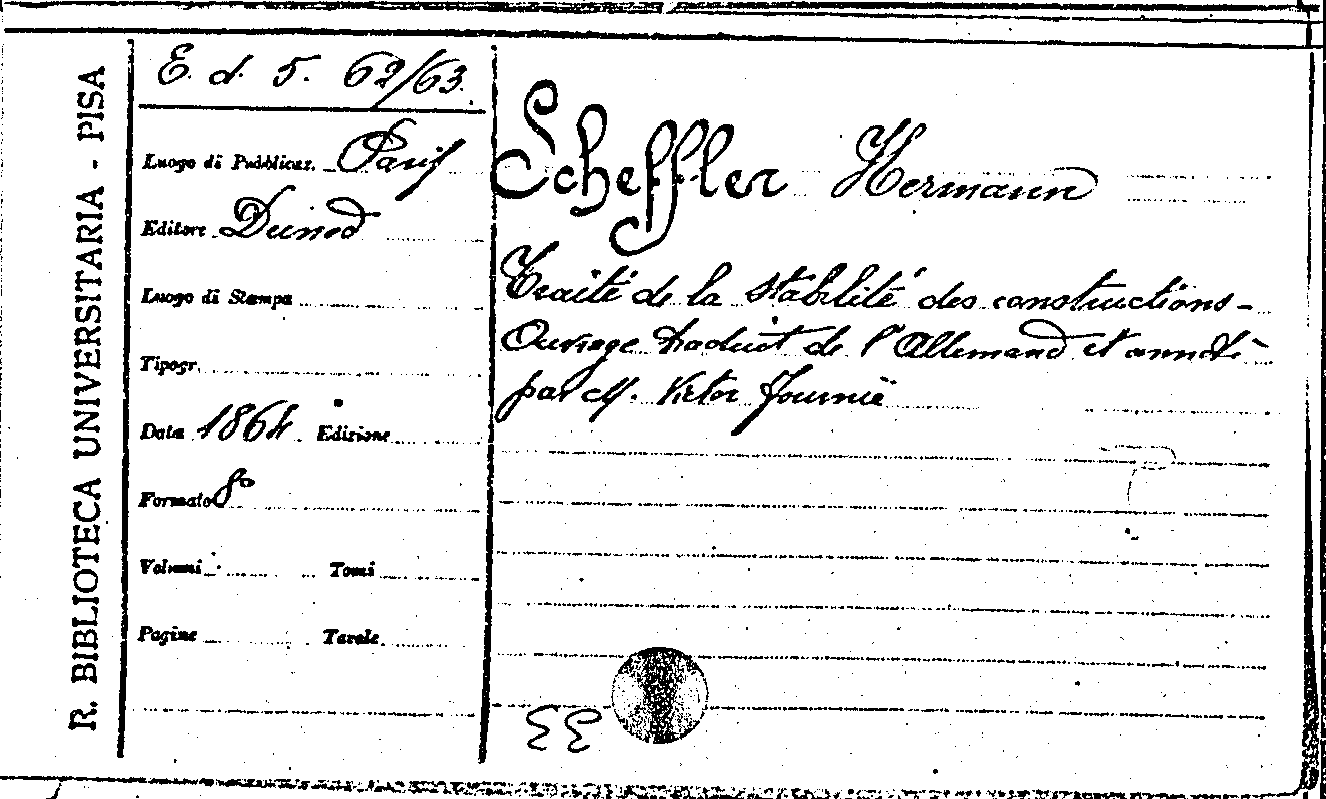 R. BIBLIOTECA UNIVERSITARIA - PISA
E. d. 5. 62/63.
Luogo di Pubblicaz. Paris
Editore Dunod
Luogo di Stampa
Tipogr.
Data 1864 Edizione
Formato 8°
Volumi Tomi
Pagine Tavole
Scheffler Hermann
Traité de la stabilité des constructions -
Ouvrage traduit de l'Allemand et annoté
par M. Victor Fournié